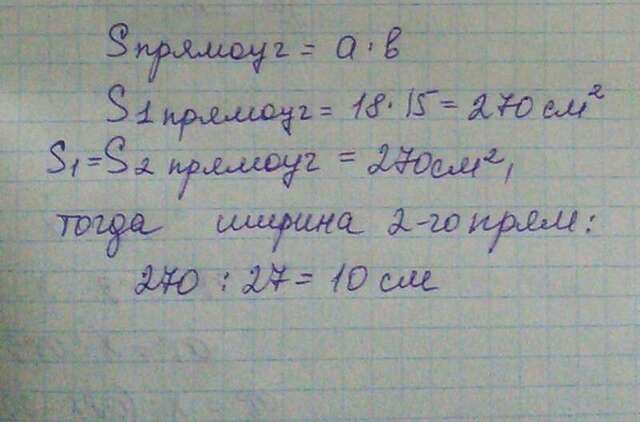 Sпрямоуг = а · в
S1 прямоуг = 18 · 15 = 270 см²
S₁ = S2 прямоуг = 270 см²,
тогда ширина 2-го прям:
270 : 27 = 10 см